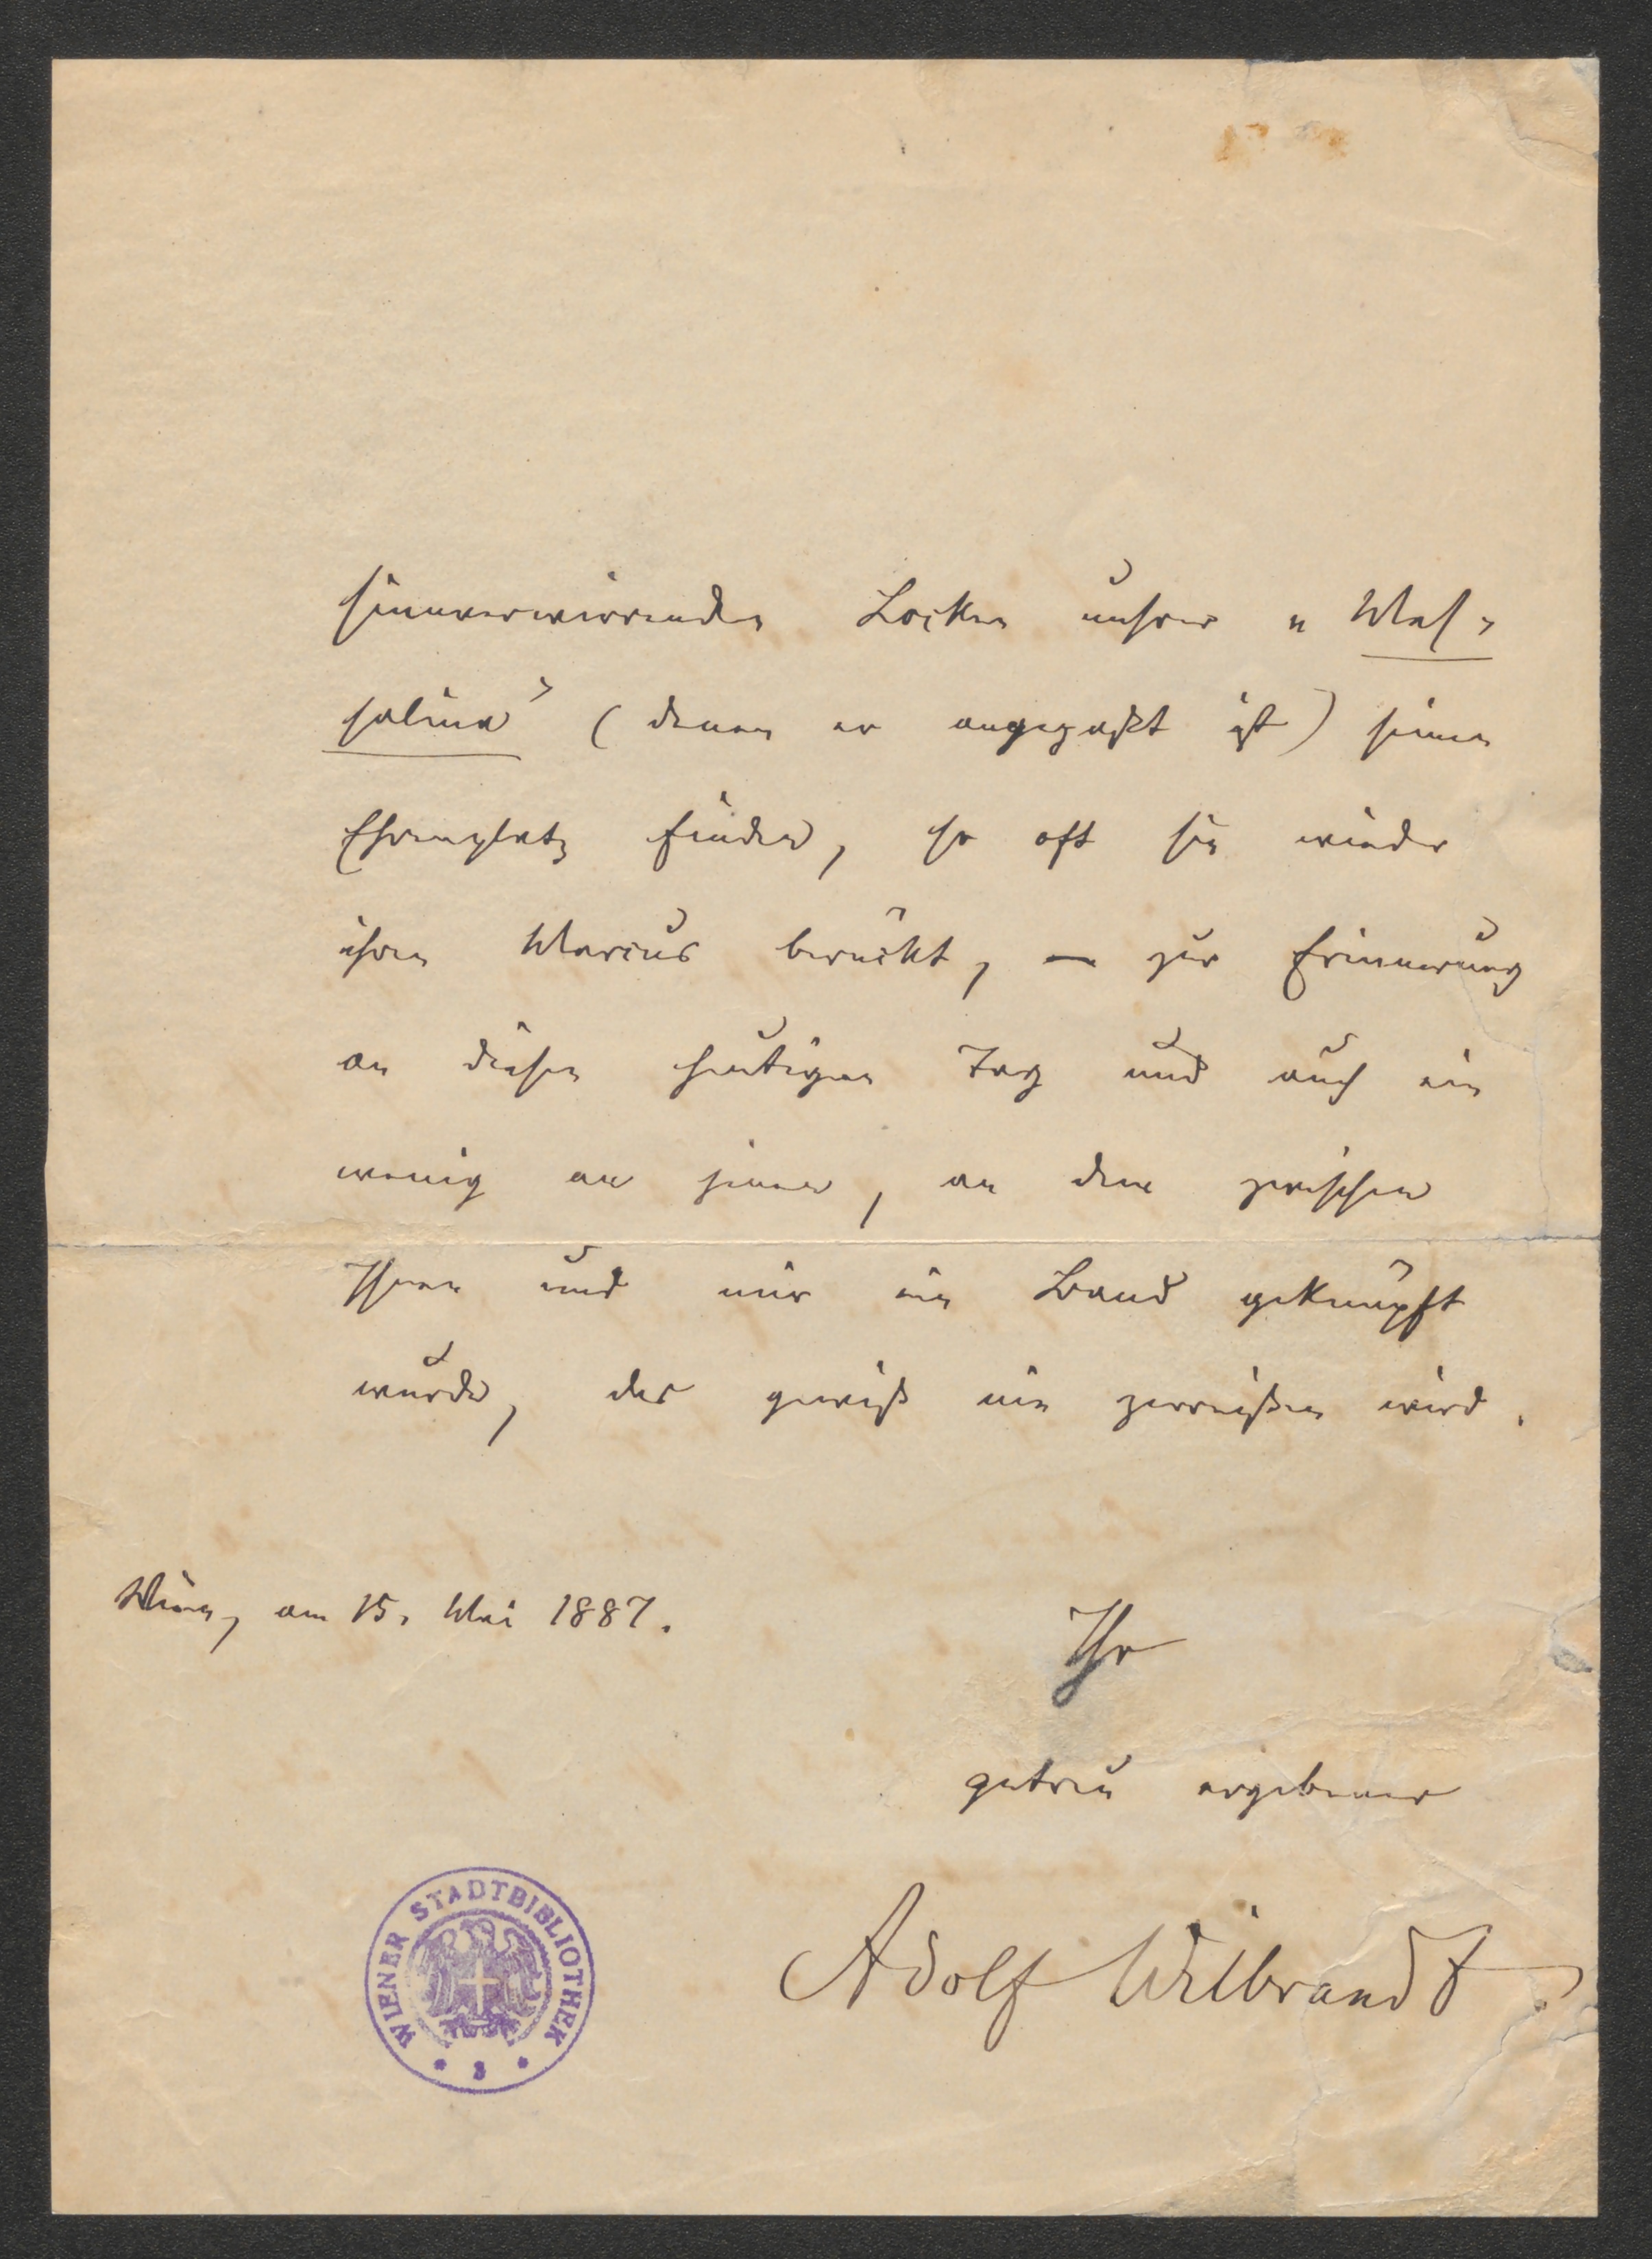 sinnverwirrenden Locken unsrer „Mes-
salina" (denen er angepaßt ist) seinen
Ehrenplatz finden, so oft sie wieder
ihren Marcus berückt, — zur Erinnerung
an diesen heutigen Tag und auch ein
wenig an jenen, an dem zwischen
Ihnen und mir ein Band geknüpft
wurde, das gewiß nie zerreißen wird.
Wien, am 15. Mai 1887.
Ihr
getreu ergebener
Adolf Wilbrandt
WIENER STADTBIBLIOTHEK